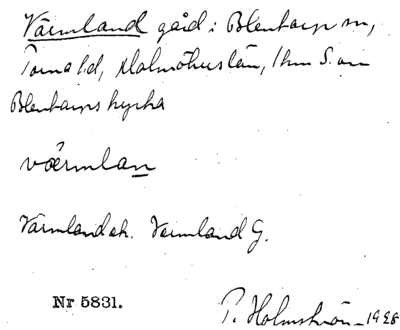 Värmland gård i Blentarp sn,
Torna hd, Malmöhus län, 1 km S. om
Blentarps kyrka
värmlan
Värmland ek. Vermland G.
Nr 5831.
P. Holmström 1928